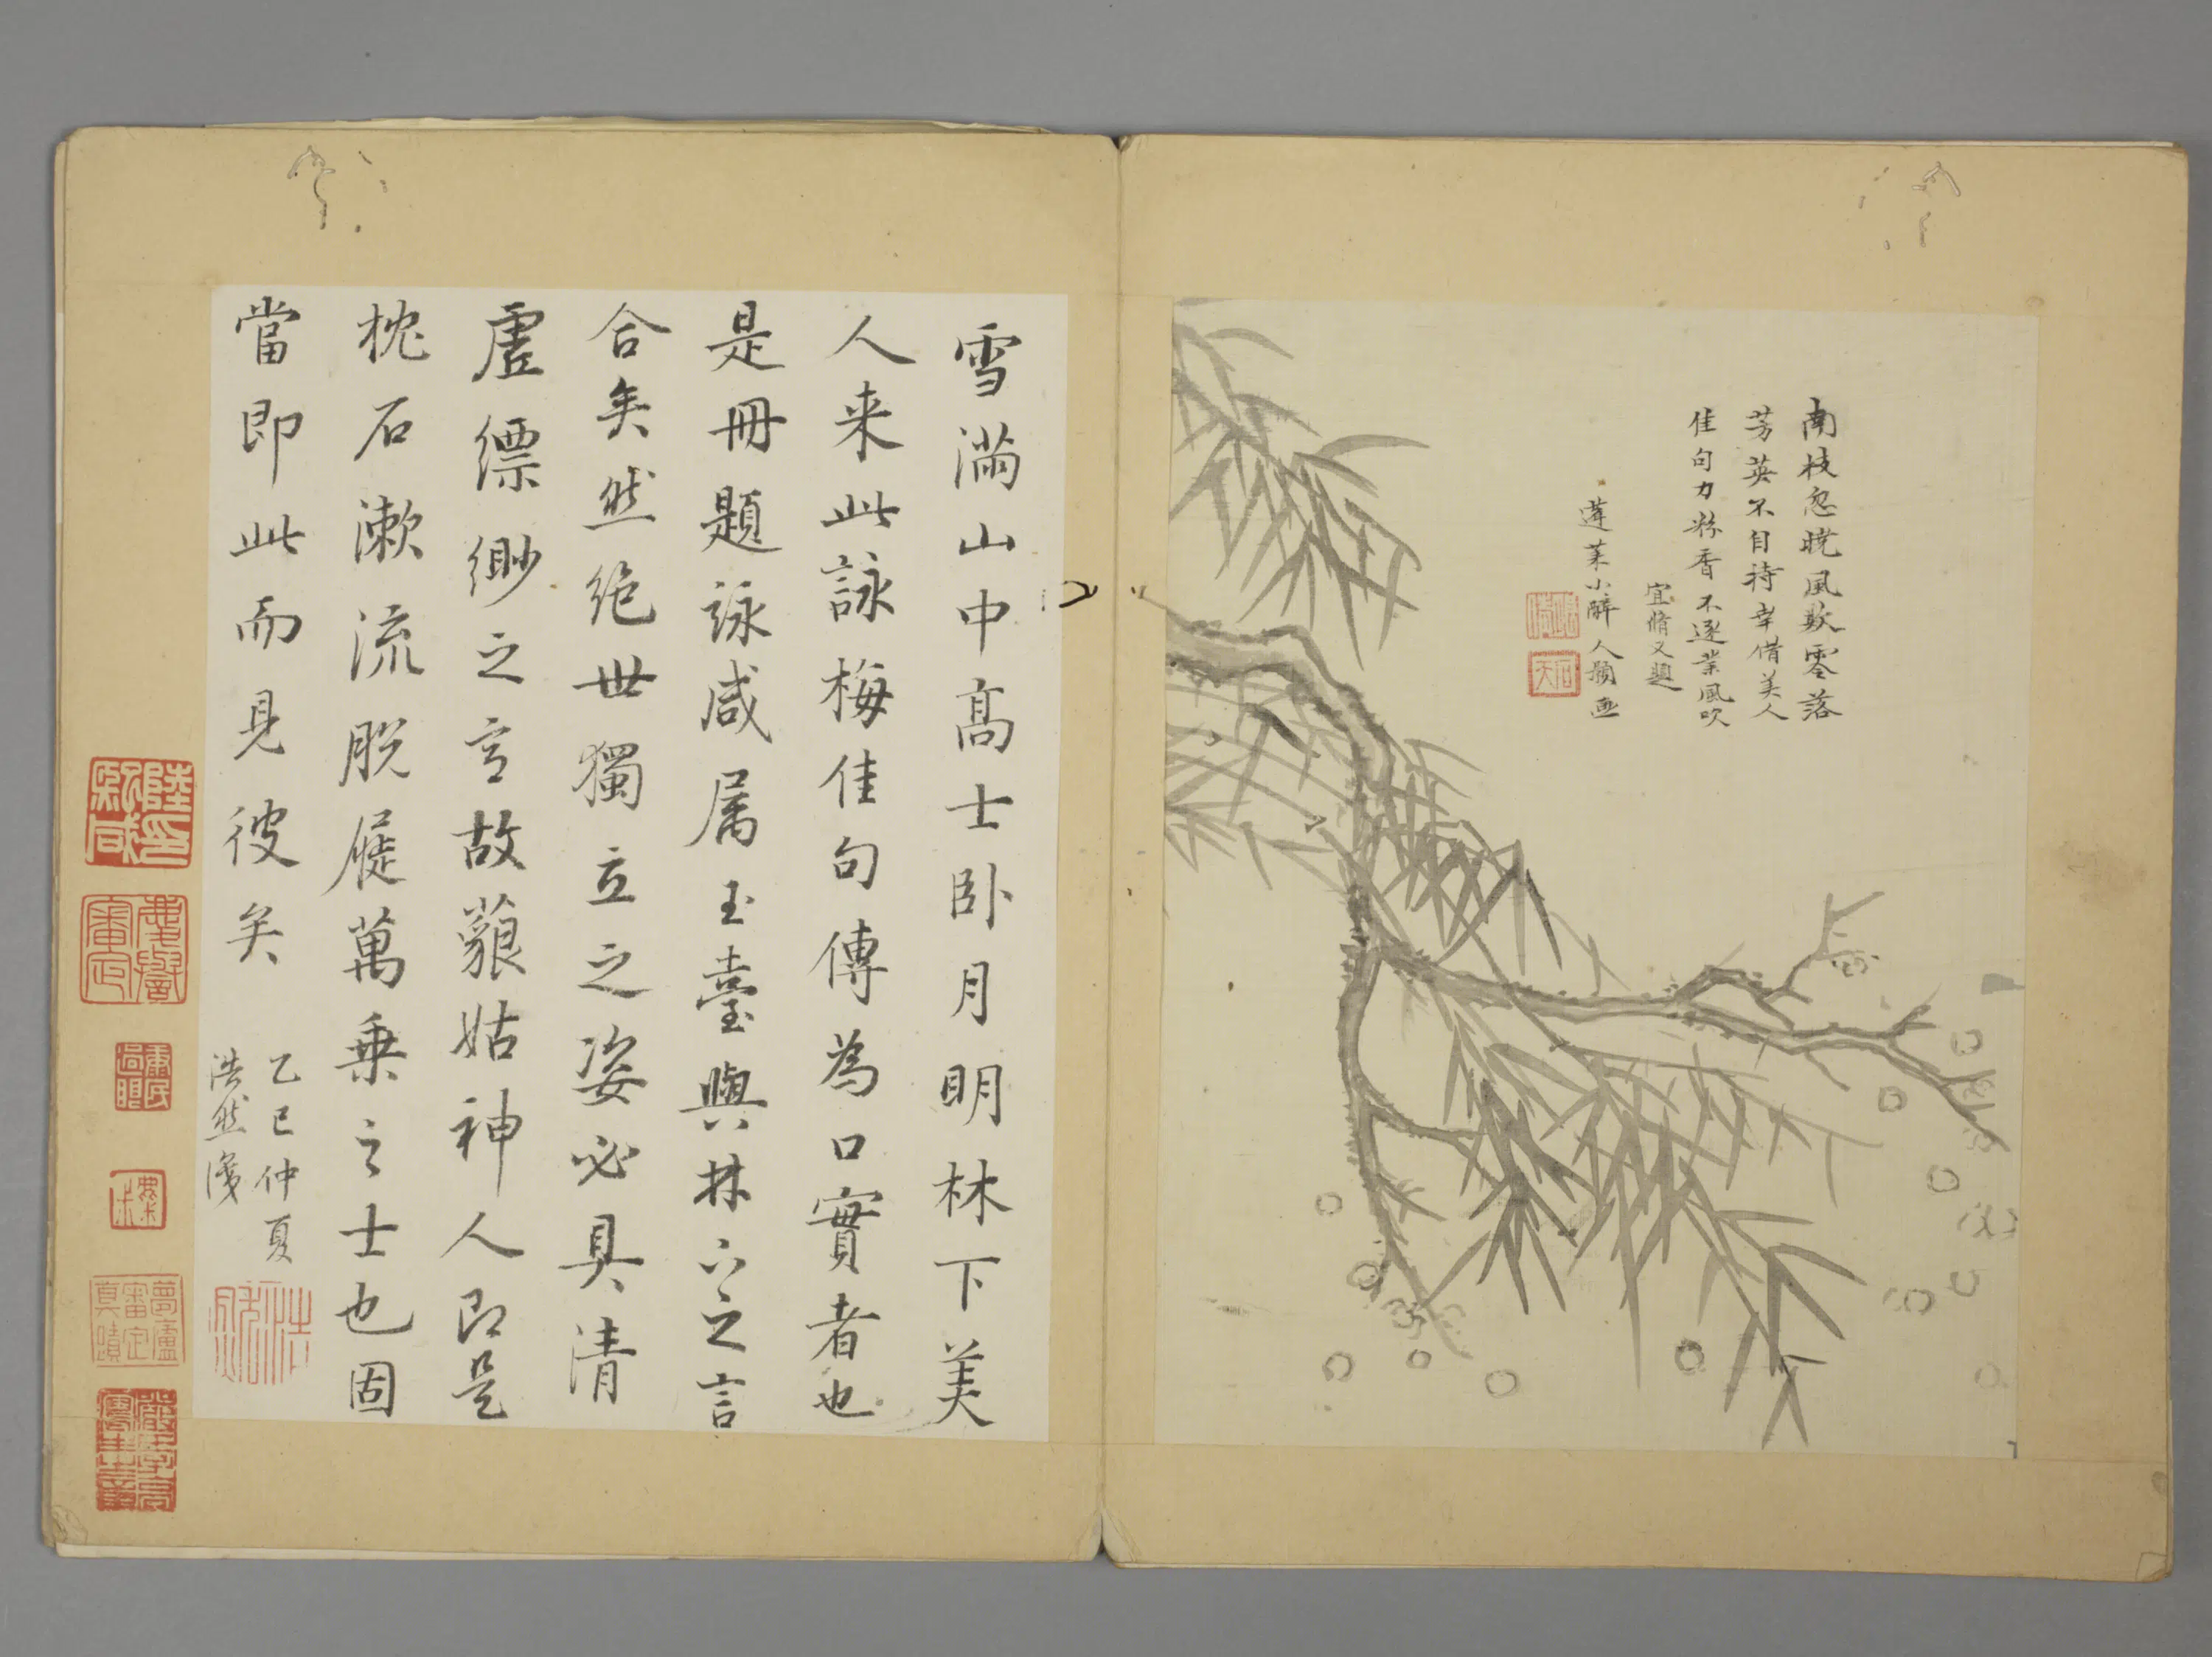 南枝忽曉風欺零落
芳英不自持幸借美人
佳句力粉香不逐業風吹
宜脩又題
蓬萊小醉人顏画
雪滿山中高士卧月明林下美
人来此詠梅佳句傳為口實者也
是冊題詠咸属玉臺與林下之言
合矣然绝世獨立之姿必具清
虚縹緲之言故藐姑神人即是
枕石漱流脱屣萬乗之士也固
當即此而見彼矣
乙巳仲夏
浩然
夢廬
審定
真蹟